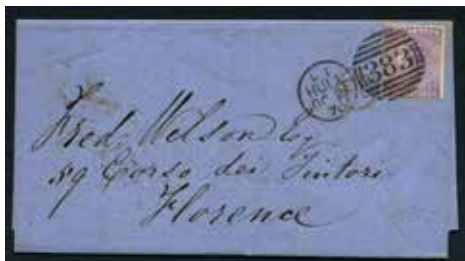 383
HULL
Fred. Wilson Esq
Corso dei Tintori
Florence